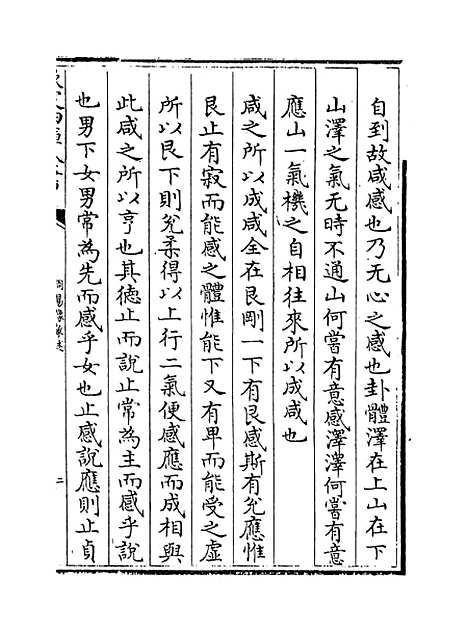 自到故咸感也乃无心之感也卦體澤在上山在下
山澤之氣无時不通山何嘗有意感澤澤何嘗有意
應山一氣機之自相往來所以成咸也
咸之所以成咸全在艮剛一下有艮感斯有兊應惟
艮止有寂而能感之體惟能下又有卑而能受之虛
所以艮下則兊柔得以上行二氣便感應而成相與
此咸之所以亨也其德止而說止常為主而感乎說
也男下女男常為先而感乎女也止感說應則止貞
二